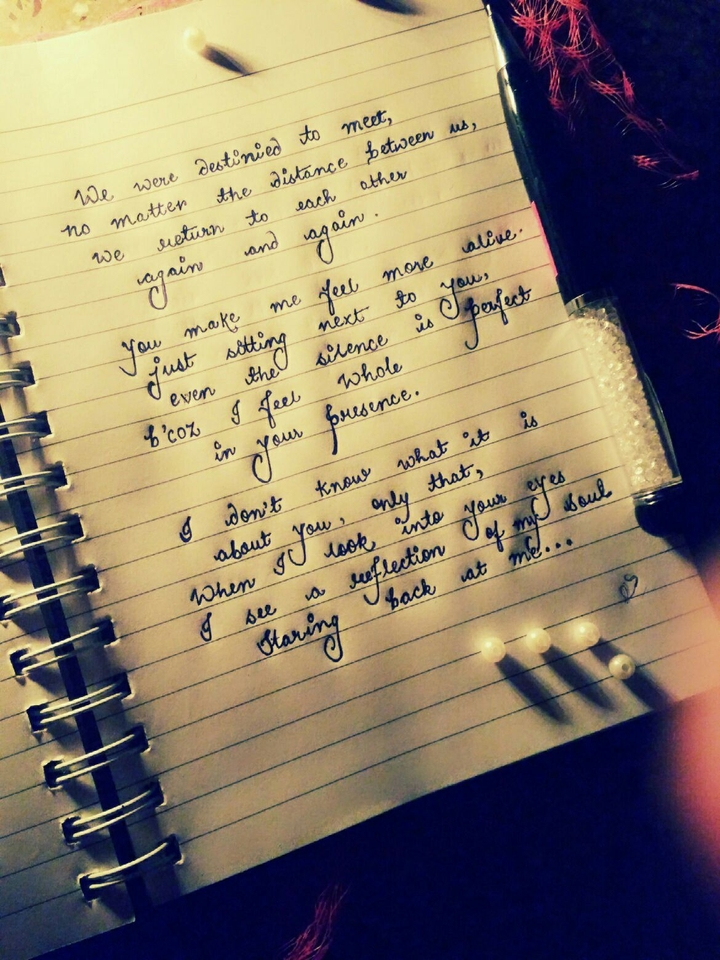 We were destinied to meet,
no matter the distance between us,
we return to each other
again and again.
You make me feel more alive.
just sitting next to you,
even the silence is perfect
b'coz I feel whole
in your presence.
I don't know what it is
about you, only that,
When I look into your eyes
I see a reflection of my soul
Staring back at me...